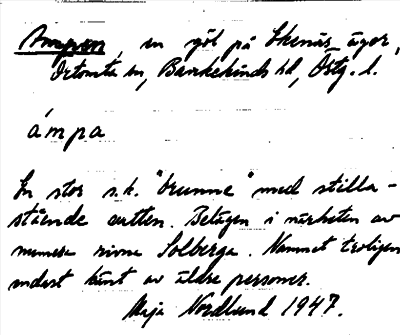 Ampen, en göl på Skenäs ägor,
Örtomta sn, Bankekinds hd, Östg. l.
ámpa
En stor s.k. "brunne" med stilla-
stående vatten. Belägen i närheten av
numera rivna Solberga. Namnet troligen
endast känt av äldre personer.
Maja Nordlund 1947.